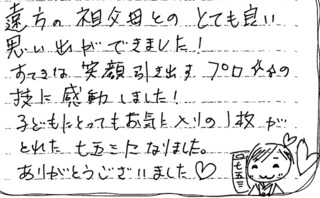 遠方の祖父母との とても良い
思い出ができました!
すてきな笑顔引き出す プロの
技に感動しました!
子どもにとってもお気に入りの1枚が
とれた 七五三になりました。
ありがとうございました♡
七五三